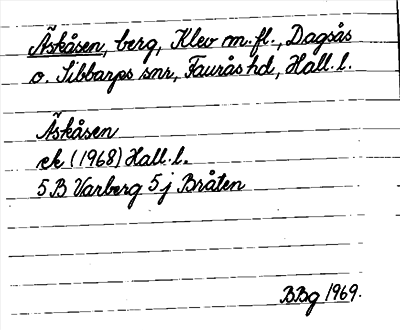 Äskåsen, berg, Klev m.fl., Dagsås
o. Sibbarps snr, Faurås hd, Hall.l.
Äskåsen
ek (1968) Hall.l.
5B Varberg 5j Bråten
BBg 1969.